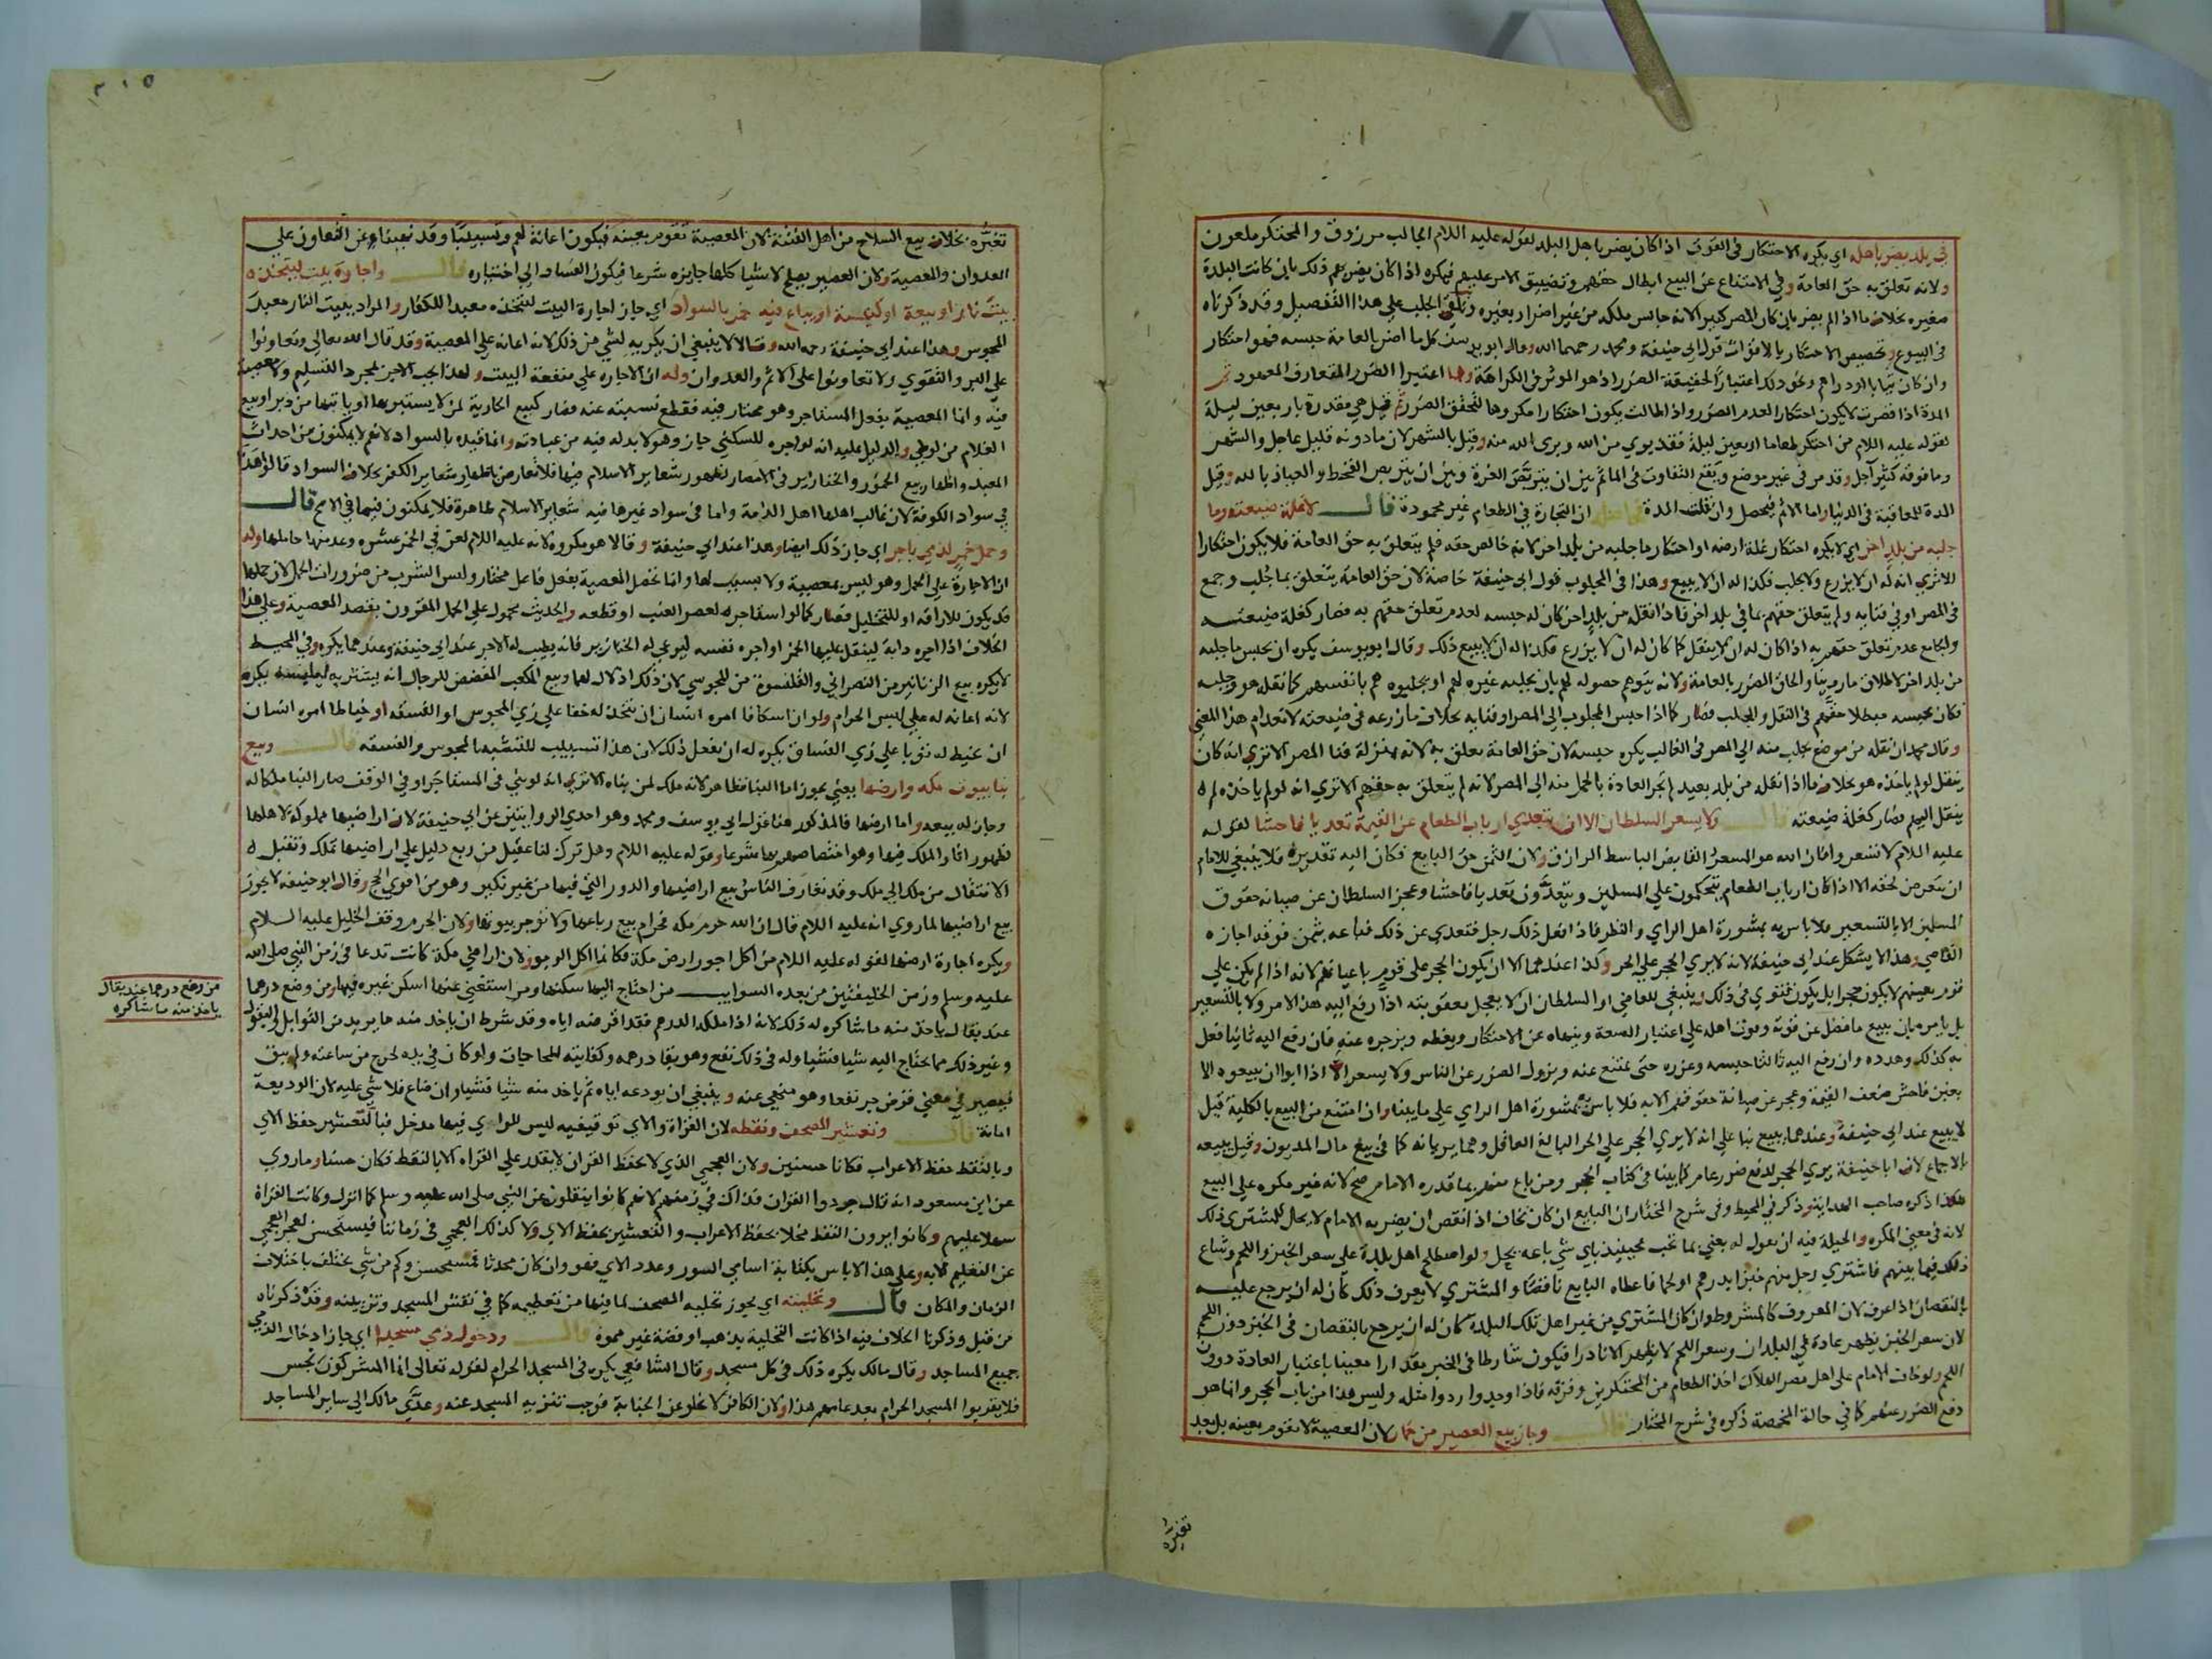 في بلد يضر باهله اي يكره الاحتكار في القوت اذا كان يضر باهل البلد لقوله عليه اللام الجالب مرزوق والمحتكر ملعون
ولانه تعلق به حق العامة وفي الامتناع عن البيع ابطال حقهم وتضييق الامر عليهم فيكره اذا كان يضر بهم ذلك بان كانت البلدة
صغيره بخلاف ما اذا لم يضر بان كان المصر كبير الانه حابس ملكه من غير اضرار بغيره وتلقي الجلب علي هذا التفصيل وقد ذكرناه
في البيوع وتخصيص الاحتكار بالاقوات قول ابي حنيفة ومحمد رحمهما الله وقال ابو يوسف كل ما اضر بالعامة حبسه فهو احتكار
وان كان ثيابا او دراهم ونحو ذلك اعتبارا لحقيقة الضرر اذ هو الموثر في الكراهة وهما اعتبرا الضرر المتعارف المعهود ثم
المدة اذا قصرت لا يكون احتكارا لعدم الضرر واذا طالت يكون احتكارا مكروها لتحقق الضرر ثم قيل هي مقدرة باربعين ليلة
لقوله عليه اللام من احتكر طعاما اربعين ليلة فقد بري من الله وبري الله منه وقيل بالشهر لان ما دونه قليل عاجل والشهر
وما فوقه كثير آجل وقد مر في غير موضع ويقع التفاوت في الماثم بين ان يتربص العزة وبين ان يتربص القحط والعياذ بالله وقيل
المدة للمعاقبة في الدنيا واما الاثم فيحصل وان قلت المدة فالحاصل ان التجارة في الطعام غير محمودة قال لا غلة ضيعته وما
جلبه من بلد اخر اي لا يكره احتكار غلة ارضه او احتكار ما جلبه من بلد اخر لانه خالص حقه فلم يتعلق به حق العامة فلا يكون احتكارا
الاتري انه له ان لا يزرع ولا يجلب فكذا له ان لا يبيع وهذا في المجلوب قول ابي حنيفة خاصة لان حق العامة يتعلق بما جلب وجمع
في المصر او في فنايه ولم يتعلق حقهم بما في بلد اخر فاذا نقله من بلد اخر كان له حبسه لعدم تعلق حقهم به فصار كغلة ضيعته
والجامع عدم تعلق حقهم به اذا كان له ان لا ينقل كما كان له ان لا يزرع فكذا له ان لا يبيع ذلك وقال ابو يوسف يكره ان يحبس ما جلبه
من بلد اخر لاطلاق ما روينا والحاق الضرر بالعامة ولانه يتوهم حصوله لهم بان يجلبه غيره لهم او يجلبوه هم بانفسهم كما نقله هو وجلبه
فكان بحبسه مبطلا حقهم في النقل والجلب فصار كما اذا حبس المجلوب الي المصر او فنايه بخلاف ما زرعه في ضيعته لانعدام هذا المعني
وقال محمد ان نقله من موضع يجلب منه الي المصر في الغالب يكره حبسه لان حق العامة تعلق به لانه بمنزلة فنا المصر الاتري انه كان
ينقل لو لم ياخذه هو بخلاف ما اذا نقله من بلد بعيد لم تجر العادة بالحمل منه الي المصر لانه لم يتعلق به حقهم الاتري انه لو لم ياخذه لم
ينقل اليهم فصار كغلة ضيعته قال ولا يسعر السلطان الا ان يتعدي ارباب الطعام عن القيمة تعديا فاحشا لقوله
عليه اللام لا تسعروا فان الله هو المسعر القابض الباسط الرازق ولان الثمن حق البايع فكان اليه تقديره فلا ينبغي للامام
ان يتعرض لحقه الا اذا كان ارباب الطعام يتحكمون علي المسلمين ويتعدون تعديا فاحشا وعجز السلطان عن صيانه حقوق
المسلمين الا بالتسعير فلا باس به بمشورة اهل الراي والنظر فاذا فعل ذلك رجل فتعدي عن ذلك فباعه بثمن فوقه اجازه
القاضي وهذا لا يشكل عند ابي حنيفة لانه لا يري الحجر علي الحر وكذا عندهما الا ان يكون الحجر علي قوم باعيانهم لانه اذا لم يكن علي
قوم بعينهم لا يكون حجرا بل يكون فتوي في ذلك وينبغي للقاضي او السلطان ان لا يعجل بعقوبته اذا رفع اليه هذا الامر ولا بالتسعير
بل يامره بان يبيع ما فضل عن قوته وقوت اهله علي اعتبار السعة وينهاه عن الاحتكار ويعظه ويزجره عنه فان رفع اليه ثانيا فعل
به كذلك وهدده وان رفع اليه ثالثا حبسه وعزره حتي يمتنع عنه ويزول الضرر عن الناس ولا يسعر الا اذا ابوا ان يبيعوه الا
بغبن فاحش ضعف القيمة وعجز عن صيانة حقوقهم الا به فلا باس به بمشورة اهل الراي علي ما بينا وان امتنع من البيع بالكلية قيل
لا يبيع عند ابي حنيفة وعندهما يبيع بنا علي انه لا يري الحجر علي الحر البالغ العاقل وهما يريانه كما في بيع مال المديون وقيل يبيعه
بالاجماع لان ابا حنيفة يري الحجر لدفع ضرر عام كما بينا في كتاب الحجر ومن باع منهم بما قدره الامام صح لانه غير مكره علي البيع
هكذا ذكره صاحب الهداية وذكر في المحيط وفي شرح المختار ان البايع ان كان يخاف اذا نقص ان يضربه الامام لا يحل للمشتري ذلك
لانه في معني المكره والحيلة فيه ان يقول له بعني بما تحب فحينيذ باي شي باعه يحل ولو اصطلح اهل بلدة علي سعر الخبز واللحم وشاع
ذلك فيما بينهم فاشتري رجل منهم خبزا بدرهم او لحما فاعطاه البايع ناقصا والمشتري لا يعرف ذلك كان له ان يرجع عليه
بالنقصان اذا عرف لان المعروف كالمشروط وان كان المشتري من غير اهل تلك البلدة كان له ان يرجع بالنقصان في الخبز دون اللحم
لان سعر الخبز يظهر عادة في البلدان وسعر اللحم لا يظهر الا نادرا فيكون شارطا في الخبز مقدارا معينا باعتبار العادة دون
اللحم ولو خاف الامام علي اهل مصر الهلاك اخذ الطعام من المحتكرين وفرقه فاذا وجدوا ردوا مثله وليس هذا من باب الحجر وانما هو
دفع الضرر عنهم كما في حالة المخمصة ذكره في شرح المختار قال وجاز بيع العصير من خمار لان المعصية لا تقوم بعينه بل بعد
تغيره
٢١٥
تغيره بخلاف بيع السلاح من اهل الفتنة لان المعصية تقوم بعينه فيكون اعانة لهم وتسبيبا وقد نهينا عن التعاون علي
العدوان والمعصية ولان العصير يصلح لاشيا كلها جايزه شرعا فيكون الفساد الي اختياره قال واجارة بيت ليتخذه
بيت نار او بيعة او كنيسة او يباع فيه خمر بالسواد اي جاز اجارة البيت ليتخذه معبدا للكفار والمراد ببيت النار معبد
المجوس وهذا عند ابي حنيفة رحمه الله وقالا لا ينبغي ان يكريه لشي من ذلك لانه اعانه علي المعصية وقد قال الله تعالي وتعاونوا
علي البر والتقوي ولا تعاونوا علي الاثم والعدوان وله ان الاجاره علي منفعة البيت ولهذا يجب الاجر بمجرد التسليم ولا معصية
فيه وانما المعصية بفعل المستاجر وهو مختار فيه فقطع نسبته عنه فصار كبيع الجارية لمن لا يستبريها او ياتيها من دبر او بيع
الغلام من لوطي والدليل عليه انه لو اجره للسكني جاز وهو لا بد له فيه من عبادته وانما قيده بالسواد لانهم لا يمكنون من احداث
المعبد واظهار بيع الخمور والخنازير في الامصار لظهور شعاير الاسلام فيها فلا تعارض باظهار شعاير الكفر بخلاف السواد قالوا هذا
في سواد الكوفة لان غالب اهلها اهل الذمة واما في سواد غيرها فيه شعاير الاسلام ظاهرة فلا يمكنون فيها في الاصح قال
وحمل خمر لذمي باجر اي جاز ذلك ايضا وهذا عند ابي حنيفة وقالا هو مكروه لانه عليه اللام لعن في الخمر عشره وعد منها حاملها وله
ان الاجارة علي الحمل وهو ليس بمعصية ولا بسبب لها وانما تحصل المعصية بفعل فاعل مختار وليس الشرب من ضرورات الحمل لان حملها
قد يكون للاراقه او للتخليل فصار كما لو استاجره لعصر العنب او قطعه والحديث محمول علي الحمل المقرون بقصد المعصية وعلي هذا
الخلاف اذا اجره دابة لينقل عليها الخمر او اجره نفسه ليرعي له الخنازير فانه يطيب له الاجر عند ابي حنيفة وعندهما يكره وفي المحيط
لا يكره بيع الزنانير من النصراني والقلنسوة من المجوسي لان ذلك اذلال لهما وبيع المكعب المفضض للرجال انه يشتريه ليلبسه يكره
لانه اعانه له علي لبس الحرام ولو ان اسكافا امره انسان ان يتخذ له خفا علي زي المجوس او الفسقه او خياطا امره انسان
ان يخيط له ثوبا علي زي الفساق يكره له ان يفعل ذلك لان هذا تسبيب للتشبه بالمجوس والفسقه قال وبيع
بنا بيوت مكه وارضها يعني يجوز اما البنا فظاهر لانه ملك لمن بناه الاتري انه لو بني في المستاجر او في الوقف صار البنا ملكا له
وجاز له بيعه واما ارضها فالمذكور هنا قول ابي يوسف ومحمد وهو احدي الروايتين عن ابي حنيفة لان اراضيها مملوكة لاهلها
لظهور اثار الملك فيها وهو اختصاصهم بها شرعا وقوله عليه اللام وهل ترك لنا عقيل من ربع دليل علي ان اراضيها تملك وتقبل
الانتقال من ملك الي ملك وقد تعارف الناس بيع اراضيها والدور التي فيها من غير نكير وهو من اقوي الحجج وقال ابو حنيفه لا يجوز
بيع اراضيها لما روي انه عليه اللام قال ان الله حرم مكه فحرام بيع رباعها ولا توجر بيوتها ولان الحرم وقف الخليل عليه السلام
ويكره اجارة ارضها لقوله عليه اللام من اكل اجور ارض مكة فكانما اكل الربوا ولان اراضي مكة كانت تدعا في زمن النبي صلي الله
عليه وسلم وزمن الخليفتين من بعده السوايب من احتاج اليها سكنها ومن استغني عنها اسكن غيره فيها ومن وضع درهما
عند بقال ياخذ منه ما شا كره له ذلك لانه اذا ملكه الدرهم فقد اقرضه اياه وقد شرط ان ياخذ منه ما يريد من التوابل والبقول
وغير ذلك مما يحتاج اليه شيا فشيا وله في ذلك نفع وهو بقا درهمه وكفايته للحاجات ولو كان في يده لخرج من ساعته ولم يبق
فيصير في معني قرض جر نفعا وهو منهي عنه وينبغي ان يودعه اياه ثم ياخذ منه شيا فشيا وان ضاع فلا شي عليه لان الوديعة
امانة قال وتعشير المصحف ونقطه لان القراة والاي توقيفيه ليس للراي فيها مدخل فبالتعشير حفظ الاي
وبالنقط حفظ الاعراب فكانا حسنين ولان العجمي الذي لا يحفظ القران لا يقدر علي القراه الا بالنقط فكان حسنا وما روي
عن ابن مسعود انه قال جردوا القران فذاك في زمنهم لانهم كانوا ينقلونه عن النبي صلي الله عليه وسلم كما انزل وكانت القراة
سهلا عليهم وكانوا يرون النقط مخلا بحفظ الاعراب والتعشير بحفظ الاي ولا كذلك العجمي في زماننا فيستحسن لعجز العجمي
عن التعليم الا به وعلي هذا لا باس بكتابة اسامي السور وعدد الاي فهو وان كان محدثا فمستحسن وكم من شي يختلف باختلاف
الزمان والمكان قال وتحليته اي يجوز تحليه المصحف لما فيها من تعظيمه كما في نقش المسجد وتزيينه وقد ذكرناه
من قبل وذكرنا الخلاف فيه اذا كانت التحلية بذهب او فضة غير مموه قال ودخول ذمي مسجدا اي جاز ادخال الذمي
جميع المساجد وقال مالك يكره ذلك في كل مسجد وقال الشافعي يكره في المسجد الحرام لقوله تعالي انما المشركون نجس
فلا يقربوا المسجد الحرام بعد عامهم هذا ولان الكافر لا يخلو عن الجنابة فوجب تنزيه المسجد عنه وعدي مالك الي ساير المساجد
من وضع درهما عند بقال
ياخذ منه ما شا كره